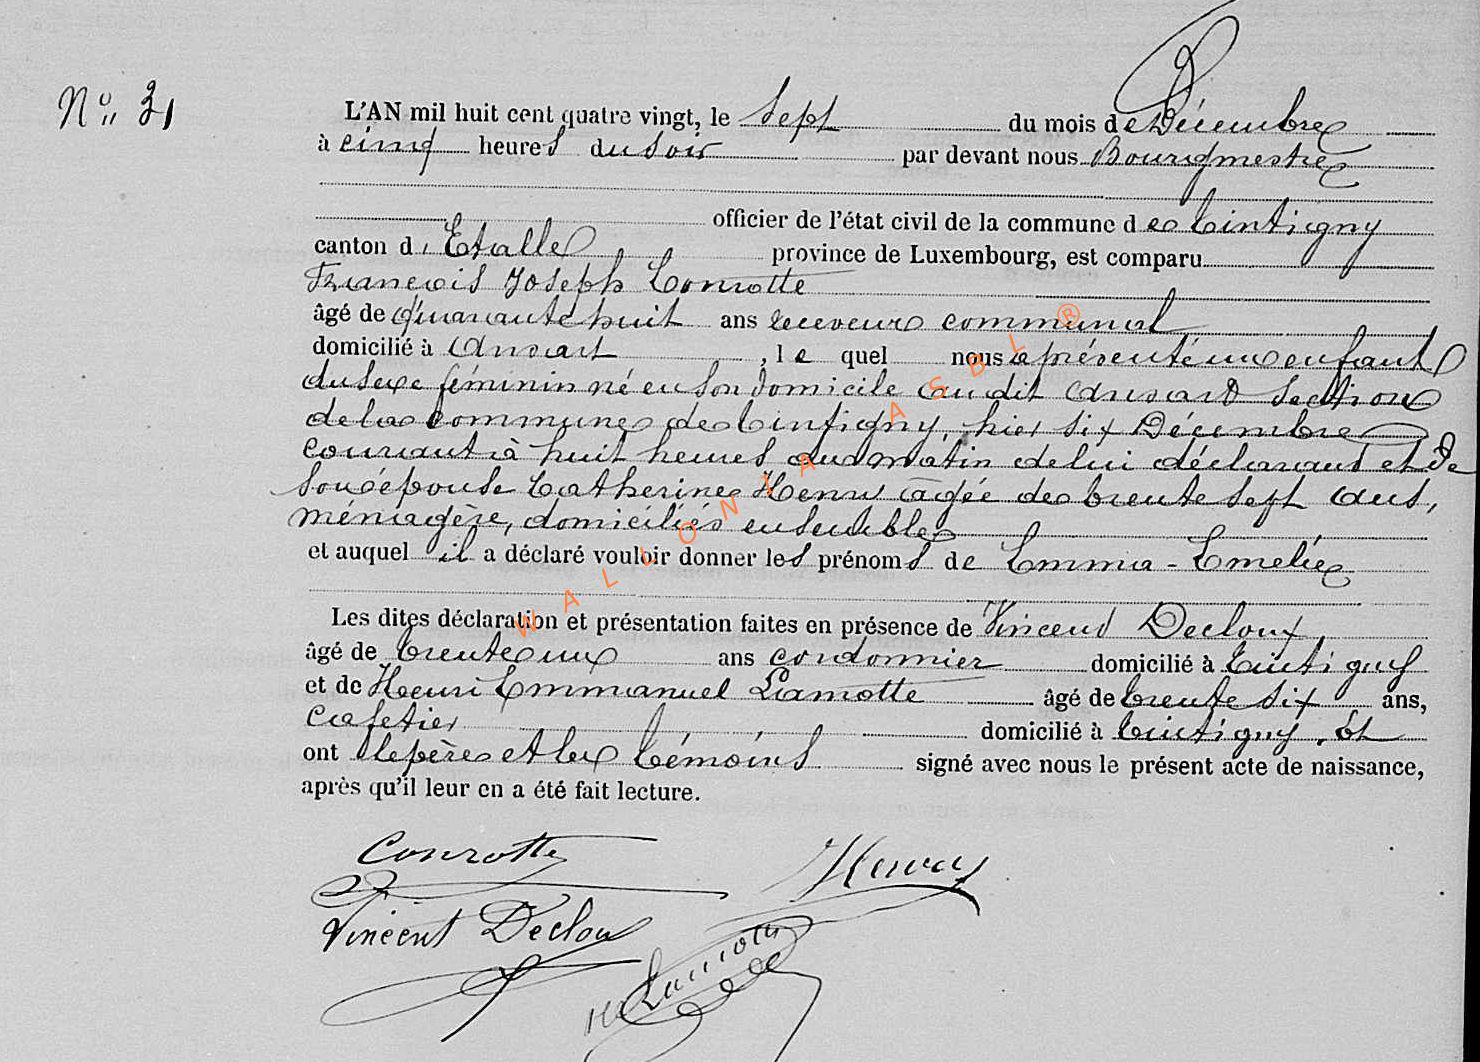 N° 31
L'AN mil huit cent quatre vingt, le Sept du mois de Décembre
à cinq heures du soir par devant nous Bourgmestre
officier de l'état civil de la commune de Tintigny
canton d'Etalle province de Luxembourg, est comparu
François Joseph Conrotte
âgé de quarante huit ans receveur communal
domicilié à Ansart, le quel nous a présenté un enfant
du sexe féminin né en son domicile audit Ansart section
de la commune de Tintigny, hier six Décembre
courant à huit heures du matin de lui déclarant et de
son épouse Catherine Henry âgée de trente sept ans,
ménagère, domiciliés ensemble
et auquel il a déclaré vouloir donner les prénoms de Emma - Emelie
Les dites déclaration et présentation faites en présence de Vincend Decloux,
âgé de trente un ans cordonnier domicilié à Tintigny
et de Henri Emmanuel Lamotte âgé de trente six ans,
cafetier domicilié à Tintigny. Et
ont le père et les témoins signé avec nous le présent acte de naissance,
après qu'il leur en a été fait lecture.
Conrotte
Vincent Decloux
Lamotte
WALLONIA ASBL ®